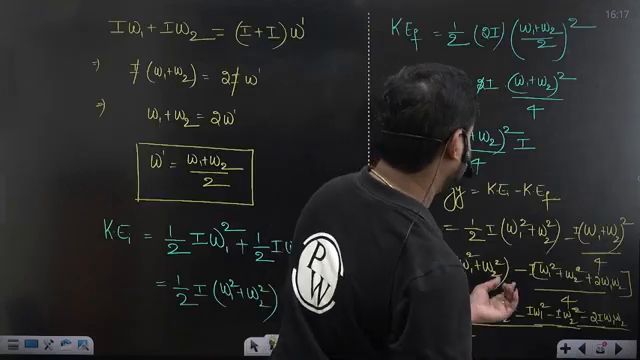 16:17
Iω₁ + Iω₂ = (I+I)ω'
⇒ I(ω₁+ω₂) = 2Iω'
⇒ ω₁+ω₂ = 2ω'
ω' = (ω₁+ω₂)/2
KEᵢ = 1/2 Iω₁² + 1/2 Iω
= 1/2 I(ω₁²+ω₂²)
PW
KE_f = 1/2 (2I) ((ω₁+ω₂)/2)²
2I (ω₁+ω₂)²/4
+ω₂)²/4 I
= KEᵢ - KE_f
= 1/2 I(ω₁²+ω₂²) - I(ω₁+ω₂)²/4
ω₁²+ω₂²) - I[ω₁²+ω₂²+2ω₁ω₂]/4
Iω₁² - Iω₂² - 2Iω₁ω₂